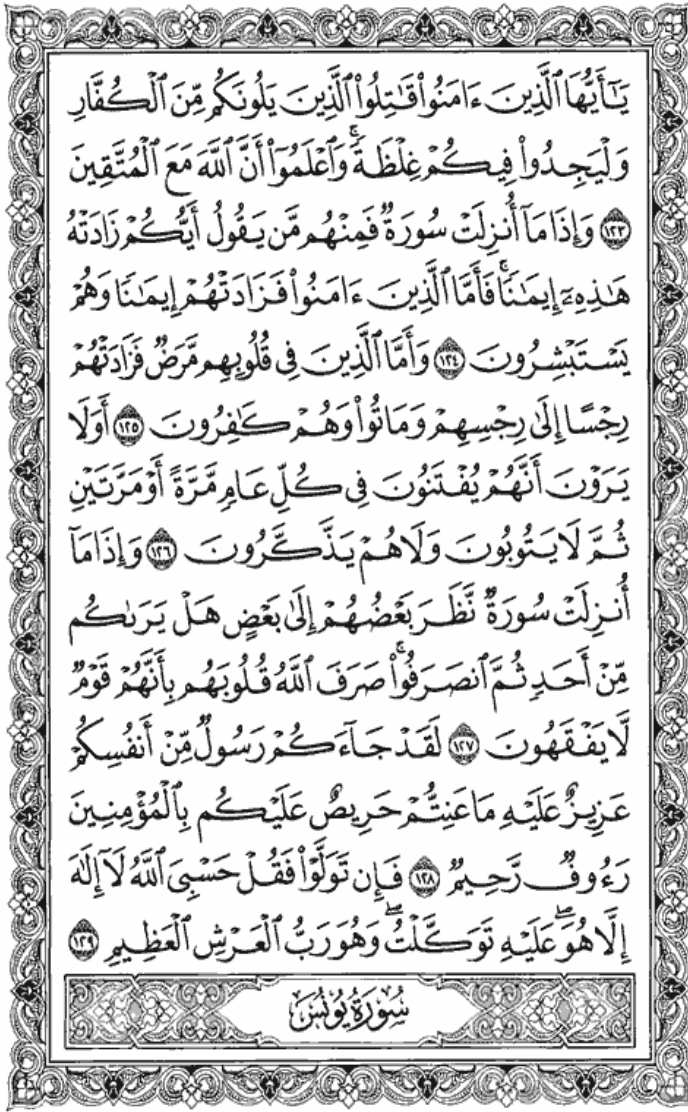 يَٰٓأَيُّهَا ٱلَّذِينَ ءَامَنُوا۟ قَٰتِلُوا۟ ٱلَّذِينَ يَلُونَكُم مِّنَ ٱلْكُفَّارِ
وَلْيَجِدُوا۟ فِيكُمْ غِلْظَةً ۚ وَٱعْلَمُوٓا۟ أَنَّ ٱللَّهَ مَعَ ٱلْمُتَّقِينَ
١٢٣ وَإِذَا مَآ أُنزِلَتْ سُورَةٌ فَمِنْهُم مَّن يَقُولُ أَيُّكُمْ زَادَتْهُ
هَٰذِهِۦٓ إِيمَٰنًا ۚ فَأَمَّا ٱلَّذِينَ ءَامَنُوا۟ فَزَادَتْهُمْ إِيمَٰنًا وَهُمْ
يَسْتَبْشِرُونَ ١٢٤ وَأَمَّا ٱلَّذِينَ فِى قُلُوبِهِم مَّرَضٌ فَزَادَتْهُمْ
رِجْسًا إِلَىٰ رِجْسِهِمْ وَمَاتُوا۟ وَهُمْ كَٰفِرُونَ ١٢٥ أَوَلَا
يَرَوْنَ أَنَّهُمْ يُفْتَنُونَ فِى كُلِّ عَامٍ مَّرَّةً أَوْ مَرَّتَيْنِ
ثُمَّ لَا يَتُوبُونَ وَلَا هُمْ يَذَّكَّرُونَ ١٢٦ وَإِذَا مَآ
أُنزِلَتْ سُورَةٌ نَّظَرَ بَعْضُهُمْ إِلَىٰ بَعْضٍ هَلْ يَرَىٰكُم
مِّنْ أَحَدٍ ثُمَّ ٱنصَرَفُوا۟ ۚ صَرَفَ ٱللَّهُ قُلُوبَهُم بِأَنَّهُمْ قَوْمٌ
لَّا يَفْقَهُونَ ١٢٧ لَقَدْ جَآءَكُمْ رَسُولٌ مِّنْ أَنفُسِكُمْ
عَزِيزٌ عَلَيْهِ مَا عَنِتُّمْ حَرِيصٌ عَلَيْكُم بِٱلْمُؤْمِنِينَ
رَءُوفٌ رَّحِيمٌ ١٢٨ فَإِن تَوَلَّوْا۟ فَقُلْ حَسْبِىَ ٱللَّهُ لَآ إِلَٰهَ
إِلَّا هُوَ ۖ عَلَيْهِ تَوَكَّلْتُ ۖ وَهُوَ رَبُّ ٱلْعَرْشِ ٱلْعَظِيمِ ١٢٩
سُورَةُ يُونُسَ